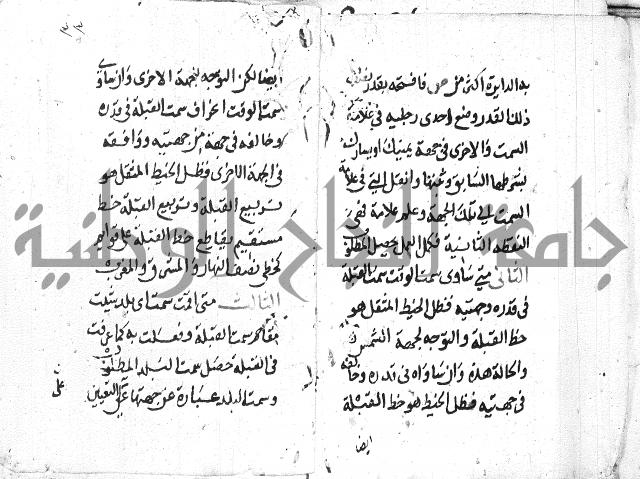 به الدايرة اكثر من فافتحه بقدر
ذلك القدر وضع احدى رجليه في علامة
السمت والاخرى في جهة يمينك او يسارك
بشرطها السابق وعلمها وانقل التي في علامة
السمت الى تلك الجهة وعلم علامة ففي
النقطه الثانية فكل العمل يحصل المطلوب
الثاني متى ساوى سمت الوقت سمت القبلة
في قدره وجهتيه فظل الخيط المثقل هو
خط القبلة والتوجه لجهة الشمس
والحالة هذه وان ساواه في قدره وخالفه
في جهتيه فظل الخيط هو خط القبلة
ايضا
ايضا لكن التوجه لجهة الاخرى وان ساوى
سمت الوقت انحراف سمت القبلة في قدره
وخالفه في جهة من جهتيه ووافقه
في الجهة الاخرى فظل الخيط المثقل هو
تربيع القبلة وتربيع القبلة خط
مستقيم يقاطع خط القبلة على قوايم
كخطي نصف النهار والمشرق والمغرب
الثالث متى اقمت سمت اي بلد شئت
مقام سمت القبلة وفعلت به كما عرفت
في القبلة حصل سمت البلد المطلوب
وسمت البلد عبارة عن جهتها على التعيين
جامعة النجاح الوطنية